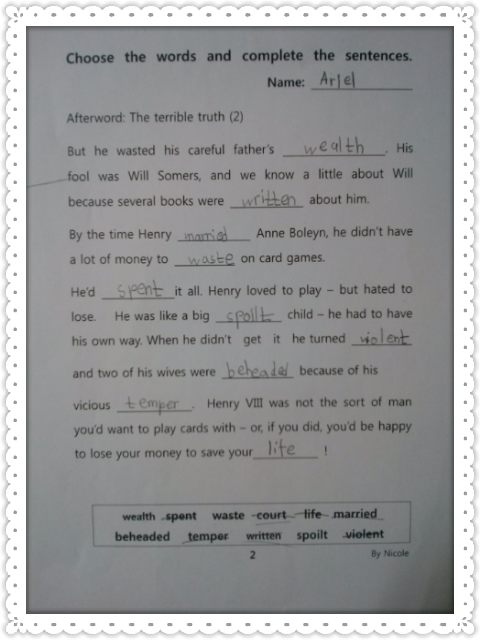 Choose the words and complete the sentences.
Name: Ariel
Afterword: The terrible truth (2)
But he wasted his careful father's wealth. His
fool was Will Somers, and we know a little about Will
because several books were written about him.
By the time Henry married Anne Boleyn, he didn't have
a lot of money to waste on card games.
He'd spent it all. Henry loved to play – but hated to
lose. He was like a big spoilt child – he had to have
his own way. When he didn't get it he turned violent
and two of his wives were beheaded because of his
vicious temper. Henry VIII was not the sort of man
you'd want to play cards with – or, if you did, you'd be happy
to lose your money to save your life !
wealth spent waste court life married
beheaded temper written spoilt violent
2
By Nicole